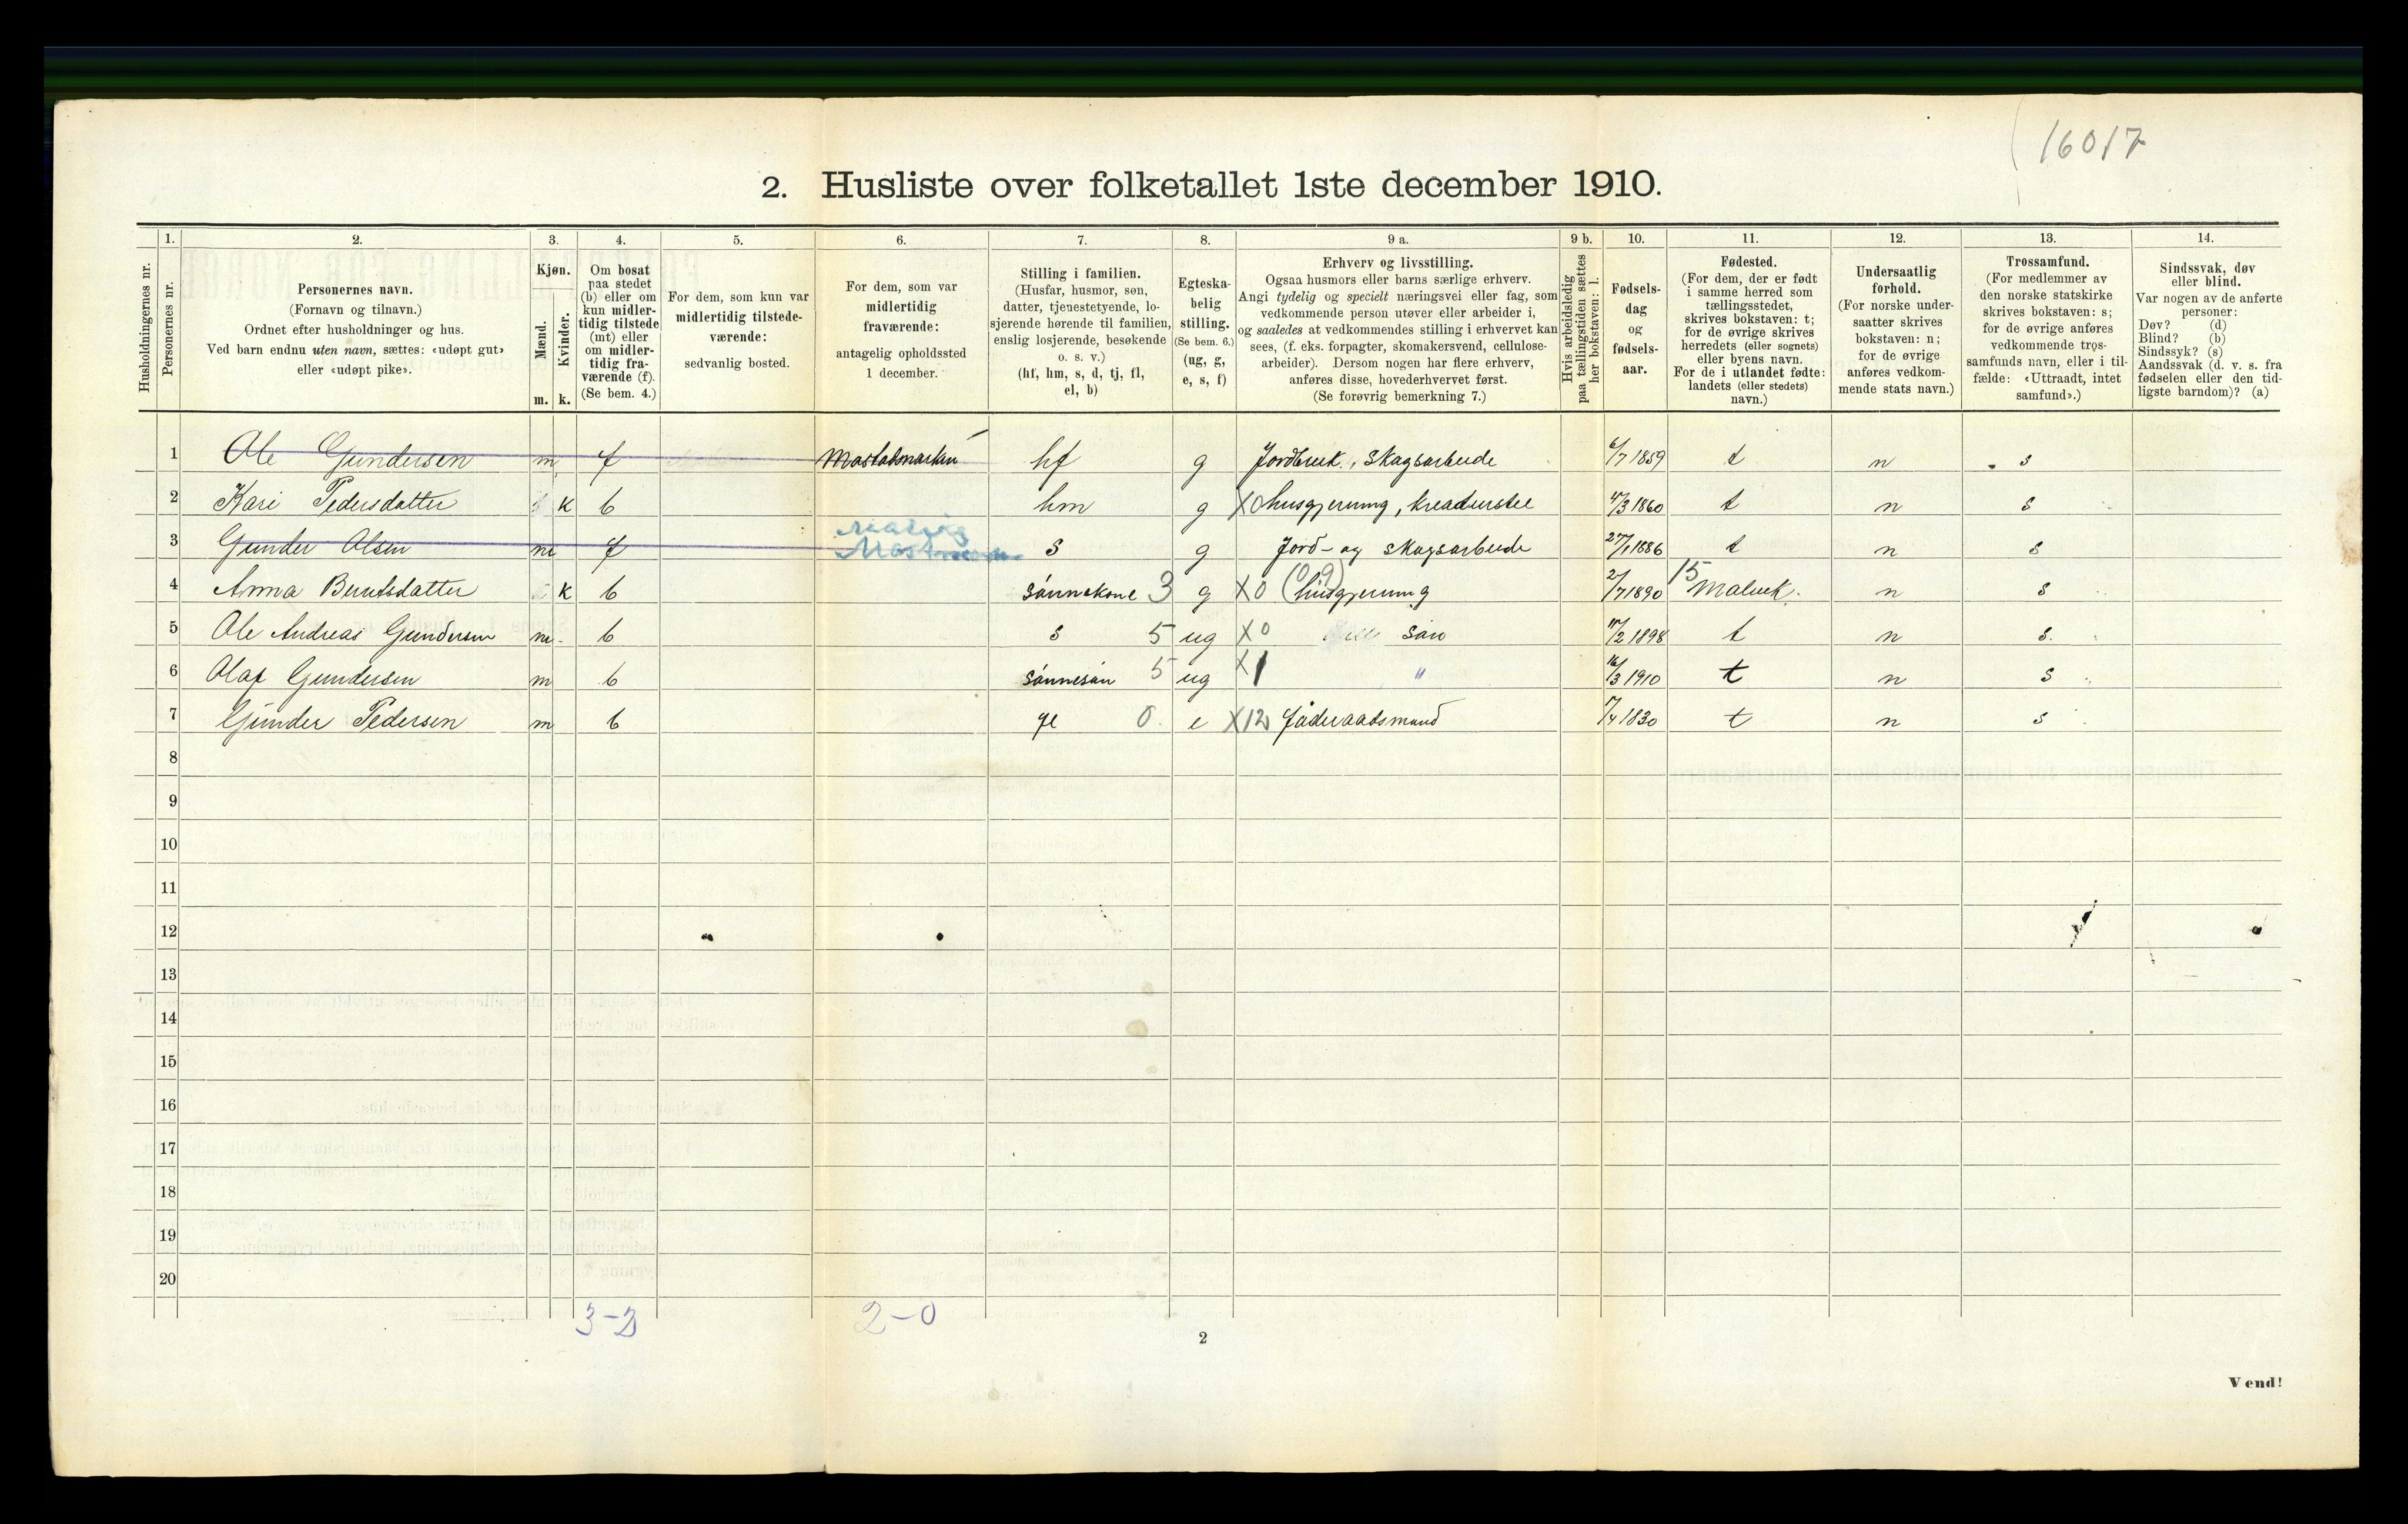 16017
2. Husliste over folketallet 1ste december 1910.
1. 2. 3. 4. 5. 6. 7. 8. 9 a. 9 b. 10. 11. 12. 13. 14.
Husholdningernes nr.
Personernes nr.
Personernes navn.
(Fornavn og tilnavn.)
Ordnet efter husholdninger og hus.
Ved barn endnu uten navn, sættes: «udøpt gut»
eller «udøpt pike».
Kjøn.
Mænd.
Kvinder.
m. k.
Om bosat
paa stedet
(b) eller om
kun midler-
tidig tilstede
(mt) eller
om midler-
tidig fra-
værende (f).
(Se bem. 4.)
For dem, som kun var
midlertidig tilstede-
værende:
sedvanlig bosted.
For dem, som var
midlertidig
fraværende:
antagelig opholdssted
1 december.
Stilling i familien.
(Husfar, husmor, søn,
datter, tjenestetyende, lo-
sjerende hørende til familien,
enslig losjerende, besøkende
o. s. v.)
(hf, hm, s, d, tj, fl,
el, b)
Egteska-
belig
stilling.
(Se bem. 6.)
(ug, g,
e, s, f)
Erhverv og livsstilling.
Ogsaa husmors eller barns særlige erhverv.
Angi tydelig og specielt næringsvei eller fag, som
vedkommende person utøver eller arbeider i,
og saaledes at vedkommendes stilling i erhvervet kan
sees, (f. eks. forpagter, skomakersvend, cellulose-
arbeider). Dersom nogen har flere erhverv,
anføres disse, hovederhvervet først.
(Se forøvrig bemerkning 7.)
Hvis arbeidsledig
paa tællingstiden sættes
her bokstaven: l.
Fødsels-
dag
og
fødsels-
aar.
Fødested.
(For dem, der er født
i samme herred som
tællingsstedet,
skrives bokstaven: t;
for de øvrige skrives
herredets (eller sognets)
eller byens navn.
For de i utlandet fødte:
landets (eller stedets)
navn.)
Undersaatlig
forhold.
(For norske under-
saatter skrives
bokstaven: n;
for de øvrige
anføres vedkom-
mende stats navn.)
Trossamfund.
(For medlemmer av
den norske statskirke
skrives bokstaven: s;
for de øvrige anføres
vedkommende tros-
samfunds navn, eller i til-
fælde: «Uttraadt, intet
samfund».)
Sindssvak, døv
eller blind.
Var nogen av de anførte
personer:
Døv? (d)
Blind? (b)
Sindssyk? (s)
Aandssvak (d. v. s. fra
fødselen eller den tid-
ligste barndom)? (a)
1 Ole Gundersen m f hf g Jordbruk., Skogsarbeide 6/7 1859 t n s
2 Kari Pedersdatter k b hm g X0 husgjerning, kreaturstel 4/3 1860 t n s
3 Gunder Olsen m f s g Jord- og skogsarbeide 27/1 1886 t n s
4 Anna Berntsdatter k b sönnekone 3 g X0 (0 9) husgjerning 2/7 1890 15 Malvik. n s
5 Ole Andreas Gundersen m b s 5 ug X0 sön 11/2 1898 t n s.
6 Olaf Gundersen m b sönnesön 5 ug X1 " 16/3 1910 t n s
7 Gunder Pedersen m b fl 0. e X12 föderaadsmand /4 1830 t n s
8
9
10
11
12
13
14
15
16
17
18
19
20
3-2 2-0
2
Vend!